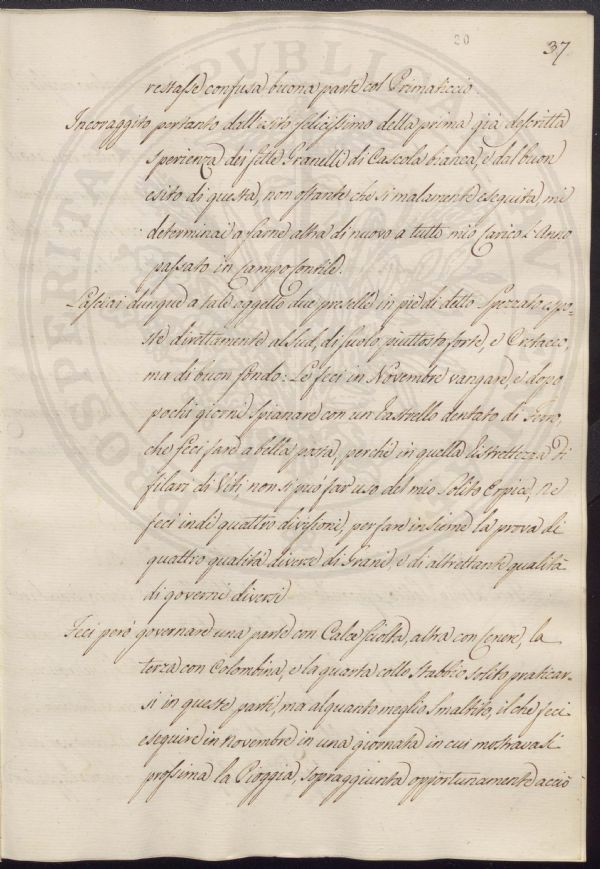 20
37
restasse confusa buona parte col Primaticcio.
Incoraggito pertanto dall'esito felicissimo della prima già descritta
sperienza dei sette Granelli di Cascola bianca, e dal buon
esito di questa, non ostante che si malamente eseguita, mi
determinai a farne altra di nuovo a tutto mio carico l'Anno
passato in Campo fontile.
Lasciai dunque a tale oggetto due preselle in piè di detto Spezzato espo-
ste direttamente al Sud, di suolo piuttosto forte, e Cretaceo,
ma di buon fondo: Le feci in Novembre vangare, e dopo
pochi giorni spianare con un Rastrello dentato di Ferro,
che feci fare a bella posta, perchè in quella ristrettezza di
filari di Viti, non si può far uso del mio solito Erpice, Ne
feci indi quattro divisioni, per fare insieme la prova di
quattro qualità diverse di Grani, e di altrettante qualità
di governi diversi
Feci però governare una parte con Calce sciolta, altra con Cenere, la
terza con Colombina, e la quarta collo Stabbio solito praticar-
si in queste parti, ma alquanto meglio smaltito, il che feci
eseguire in Novembre in una giornata in cui mostravasi
prossima la Pioggia, sopraggiunta opportunamente acciò
PUBLIC
PROSPERITA